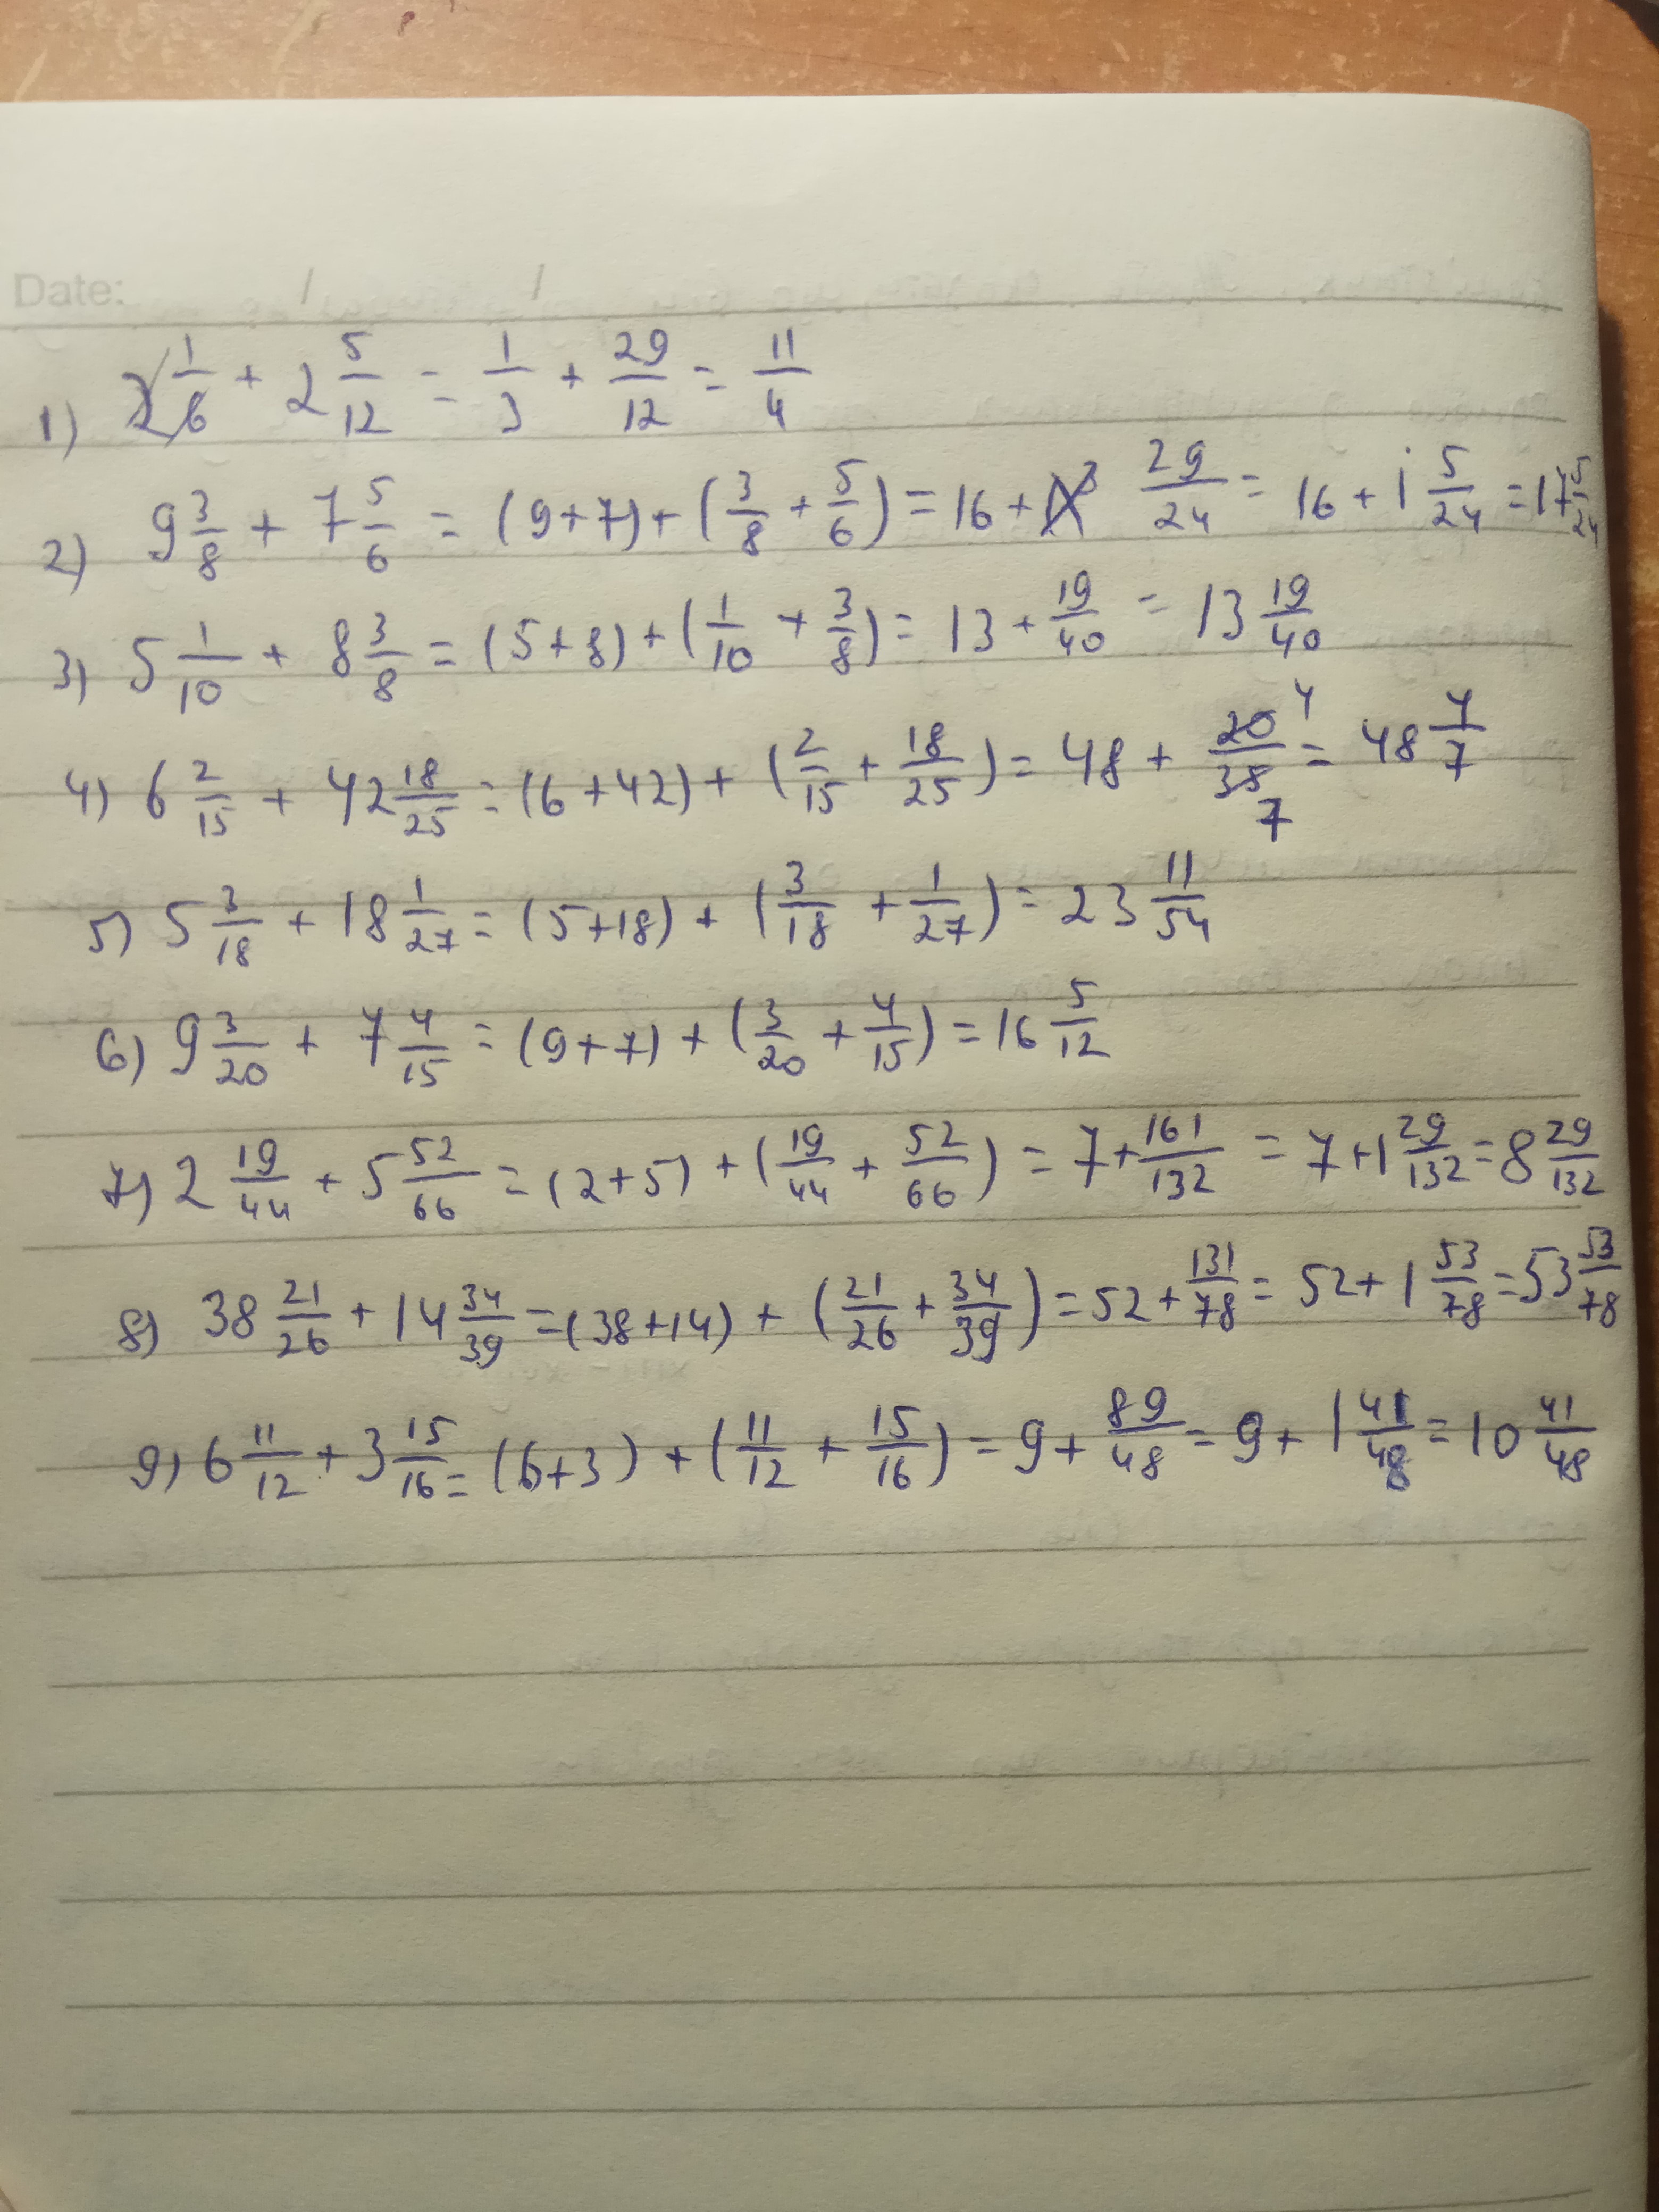 Date: / /
1) 2 1/6 + 2 5/12 = 1/3 + 29/12 = 11/4
2) 9 3/8 + 7 5/6 = (9+7) + (3/8 + 5/6) = 16 + 29/24 = 16 + 1 5/24 = 17 5/24
3) 5 1/10 + 8 3/8 = (5+8) + (1/10 + 3/8) = 13 + 19/40 = 13 19/40
4) 6 2/15 + 42 18/25 = (6+42) + (2/15 + 18/25) = 48 + 20/35 4 7 = 48 4/7
5) 5 3/18 + 18 1/27 = (5+18) + (3/18 + 1/27) = 23 11/54
6) 9 3/20 + 7 4/15 = (9+7) + (3/20 + 4/15) = 16 5/12
7) 2 19/44 + 5 52/66 = (2+5) + (19/44 + 52/66) = 7 + 161/132 = 7 + 1 29/132 = 8 29/132
8) 38 21/26 + 14 34/39 = (38+14) + (21/26 + 34/39) = 52 + 131/78 = 52 + 1 53/78 = 53 53/78
9) 6 11/12 + 3 15/16 = (6+3) + (11/12 + 15/16) = 9 + 89/48 = 9 + 1 41/48 = 10 41/48